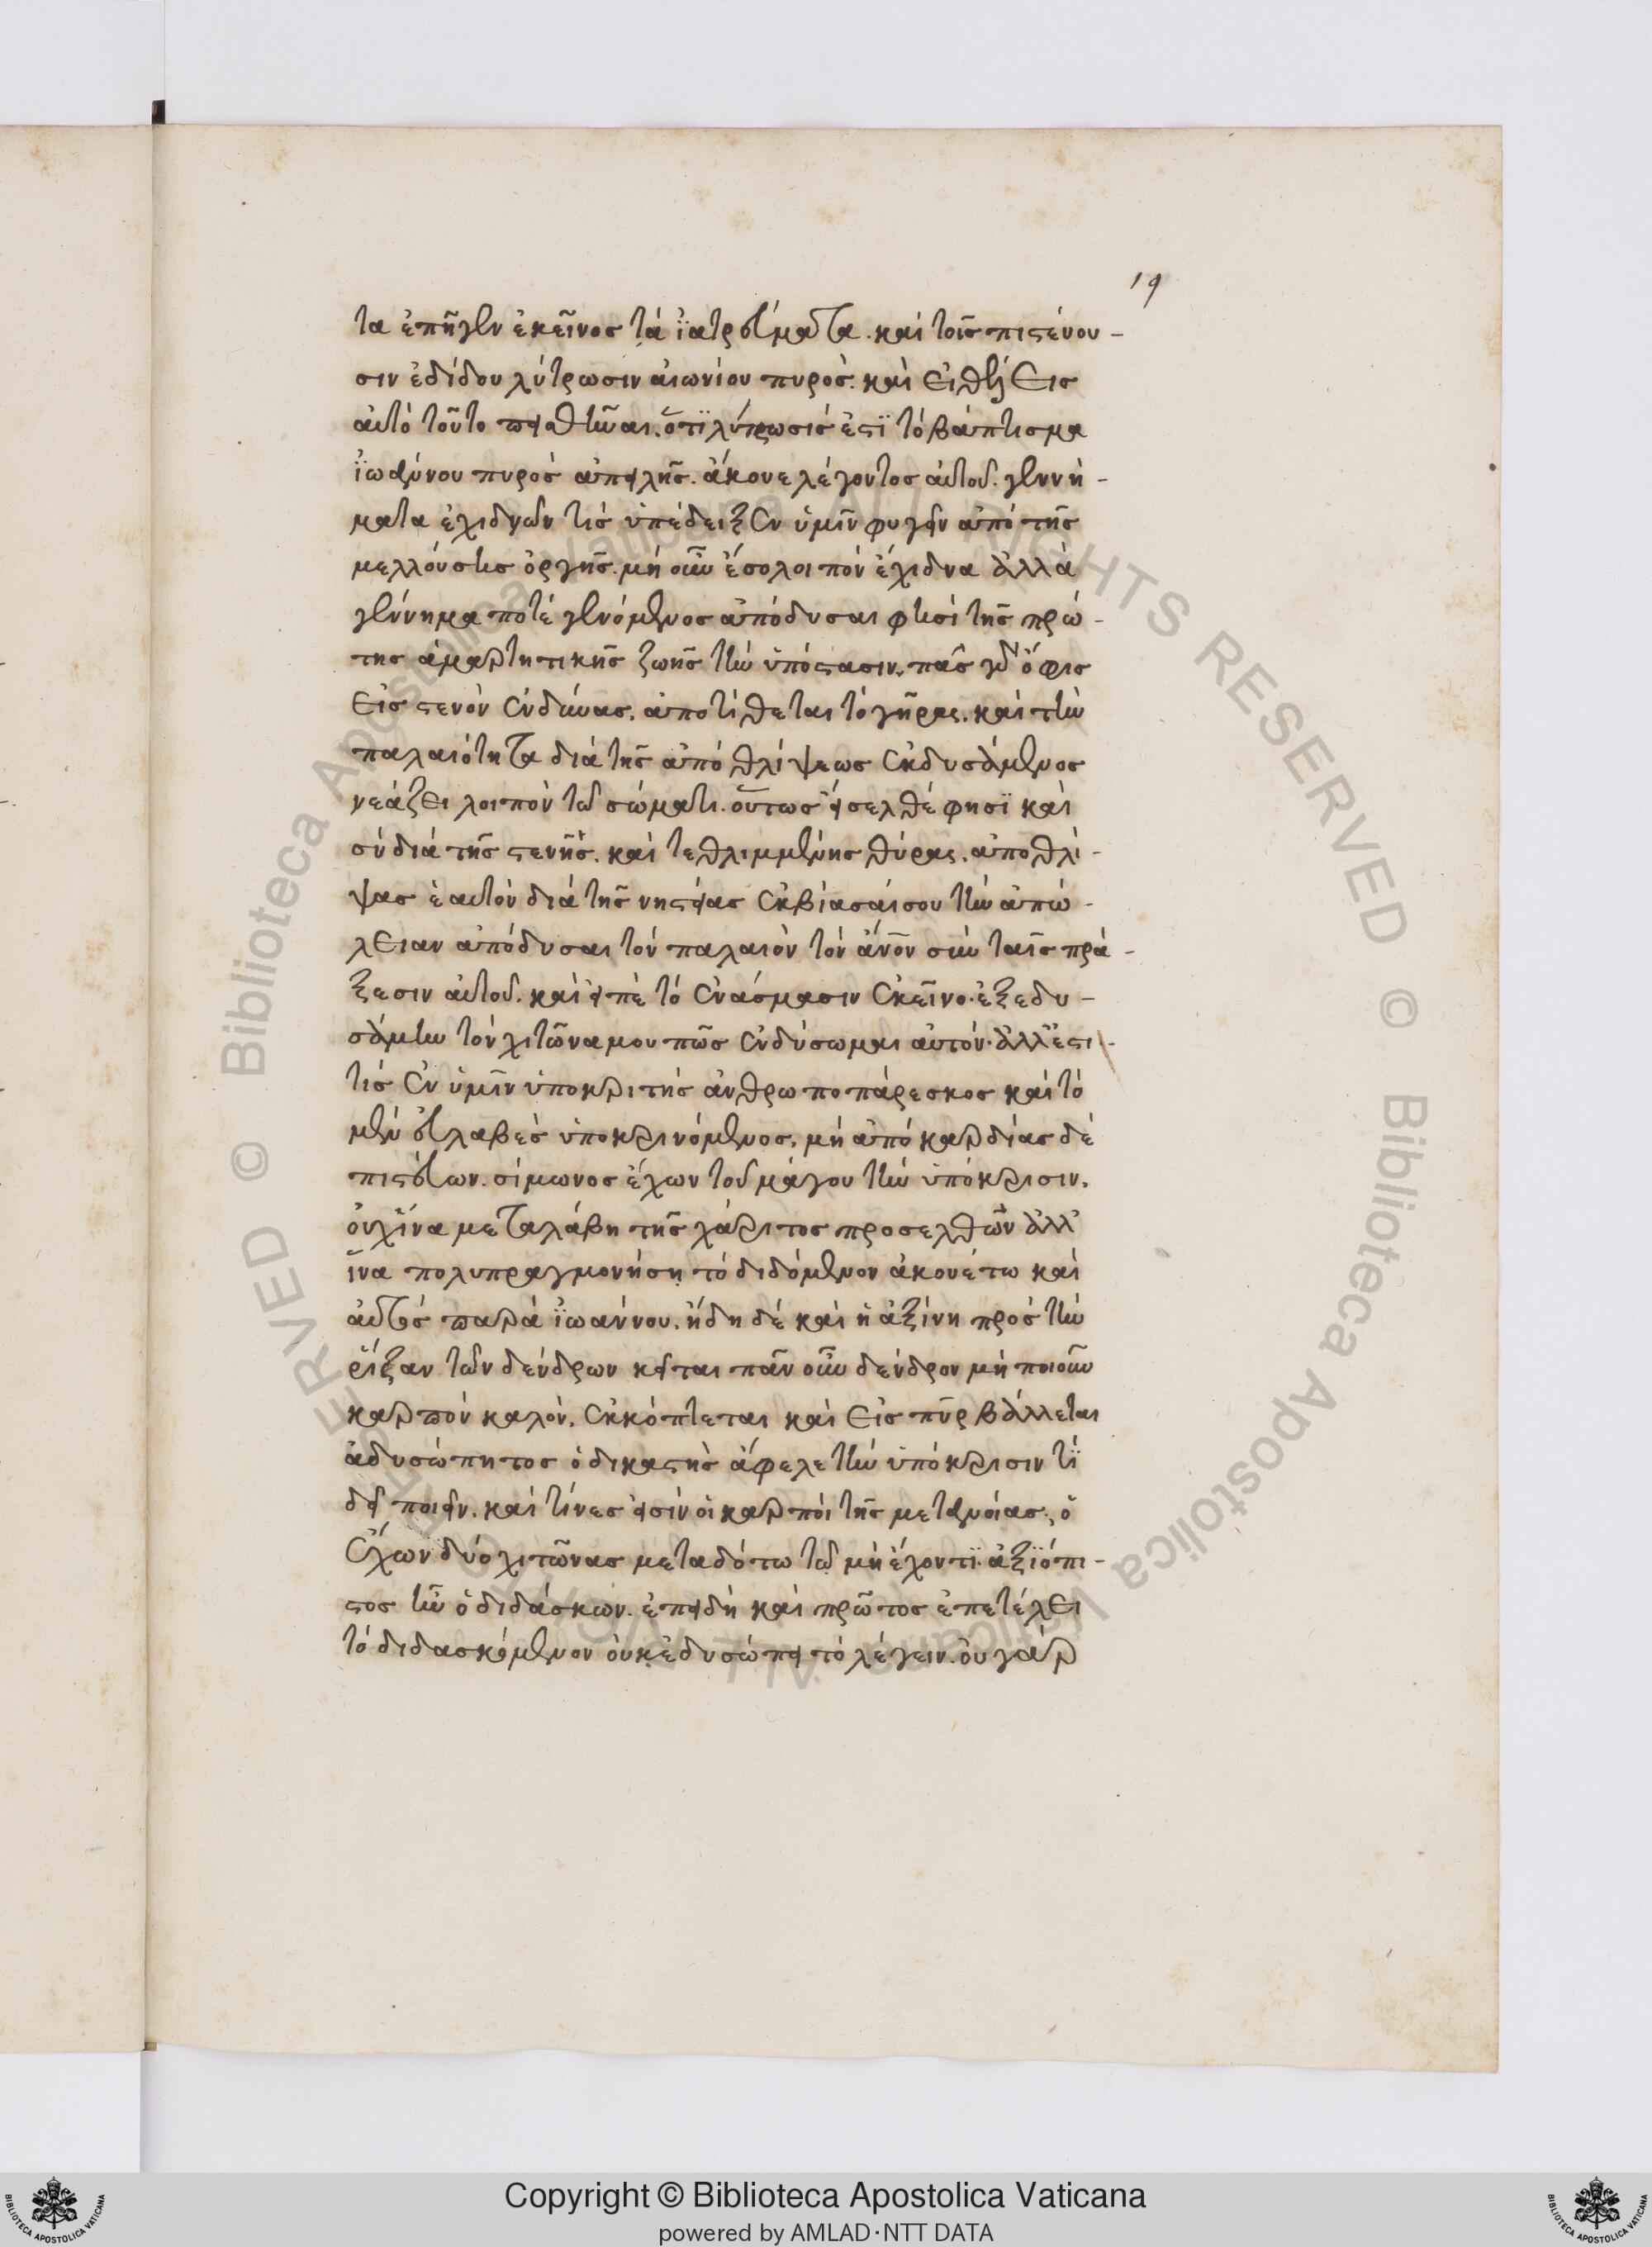 19
τα ἐπῆγεν ἐκεῖνος τὰ ἰατρεύματα. καὶ τοῖς πιστεύου-
σιν ἐδίδου λύτρωσιν αἰωνίου πυρός. καὶ εἰ θέλεις
αὐτὸ τοῦτο πεισθῆναι. ὅτι λύτρωσίς ἐστι τὸ βάπτισμα
ἰωάννου πυρὸς ἀπειλῆς. ἄκουε λέγοντος αὐτοῦ. γεννή-
ματα ἐχιδνῶν τίς ὑπέδειξεν ὑμῖν φυγεῖν ἀπὸ τῆς
μελλούσης ὀργῆς. μὴ οὖν ἔσο λοιπὸν ἔχιδνα ἀλλὰ
γέννημα ποτὲ γενόμενος ἀπόδυσαι φησὶ τῆς πρώ-
της ἁμαρτητικῆς ζωῆς τὴν ὑπόστασιν. πᾶς γὰρ ὄφις
εἰς στενὸν ἐνδύνας. ἀποτίθεται τὸ γῆρας. καὶ τὴν
παλαιότητα διὰ τῆς ἀποθλίψεως ἐκδυσάμενος
νεάζει λοιπὸν τῷ σώματι. οὕτως εἴσελθέ φησι καὶ
σὺ διὰ τῆς στενῆς. καὶ τεθλιμμένης θύρας. ἀποθλί-
ψας ἑαυτὸν διὰ τῆς νηστείας ἐκβίασαί σου τὴν ἀπώ-
λειαν ἀπόδυσαι τὸν παλαιὸν τὸν ἄνον σὺν ταῖς πρά-
ξεσιν αὐτοῦ. καὶ εἰπὲ τὸ ἐν ἄσμασιν ἐκεῖνο. ἐξεδυ-
σάμην τὸν χιτῶνα μου πῶς ἐνδύσωμαι αὐτόν. ἀλλ' ἔστι
τὶς ἐν ὑμῖν ὑποκριτὴς ἀνθρωποπάρεσκος καὶ τὸ
μὲν εὐλαβὲς ὑποκρινόμενος. μὴ ἀπὸ καρδίας δὲ
πιστεύων. σίμωνος ἔχων τοῦ μάγου τὴν ὑπόκρισιν.
οὐχ ἵνα μεταλάβη τῆς χάριτος προσελθὼν ἀλλ'
ἵνα πολυπραγμονήση τὸ διδόμενον ἀκουέτω καὶ
αὐτὸς παρὰ ἰωάννου. ἤδη δὲ καὶ ἡ ἀξίνη πρὸς τὴν
ῥίζαν τῶν δένδρων κεῖται πᾶν οὖν δένδρον μὴ ποιοῦν
καρπὸν καλόν. ἐκκόπτεται καὶ εἰς πῦρ βάλλεται
ἀδυσώπητος ὁ δικαστὴς ἄφελε τὴν ὑπόκρισιν τί
δεῖ ποιεῖν. καὶ τίνες εἰσὶν οἱ καρποὶ τῆς μετανοίας. ὁ
ἔχων δύο χιτῶνας μεταδότω τῷ μὴ ἔχοντι. ἀξιόπι-
στος ἦν ὁ διδάσκων. ἐπειδὴ καὶ πρῶτος ἐπετέλει
τὸ διδασκόμενον οὐκ ἐδυσώπει τὸ λέγειν. οὐ γὰρ
© Biblioteca Apostolica Vaticana ALL RIGHTS RESERVED © Biblioteca Apostolica Vaticana ALL RIGHTS RESERVED
Copyright © Biblioteca Apostolica Vaticana
powered by AMLAD·NTT DATA